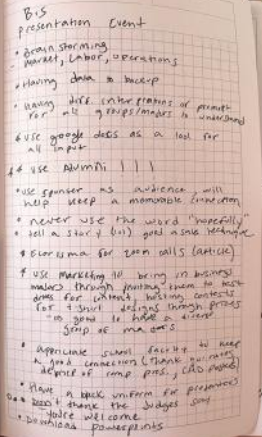 BIS
presentation Event
• Brain storming
market, Labor, operations
• Having data to backup
• Having diff. interpretations or
for all groups/majors to understand
* use google docs as a tool for
all input
* * use Alumni ! ! !
• use sponser as audience, will
help keep a memorable connection
• never use the word "hopefully"
• tell a story (lol) good sale technique
for zoom calls (article)
* use marketing to bring in business
majors through putting them to test
for content, hosting contests
for t shirt designs through prizes
good to have a
group of majors
• appreciate school faculty to keep
a good connection (thank
• Have a back uniform for presenters
thank the judges say
you're welcome
• Download powerpoints